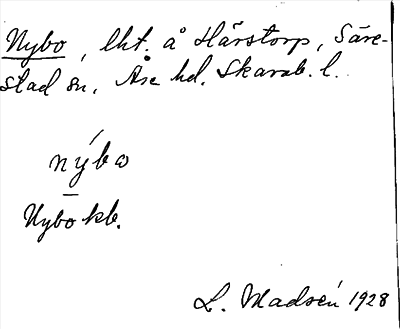 Nybo, lht. å Hårstorp, Säre-
stad sn, Åse hd. Skarab. l.
nýbω
Nybo kb.
L. Madsén 1928